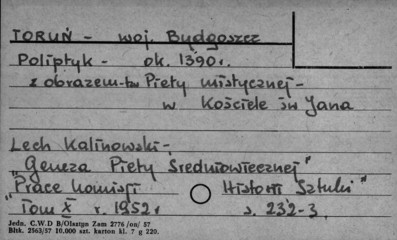 TORUŃ - woj. Bydgoszcz
Poliptyk - ok. 1390 r.
z obrazem Piety mistycznej -
w Kościele św Jana
Lech Kalinowski -
"Geneza Piety Średniowiecznej"
"Prace Komisji Historii Sztuki"
Tom X r. 1952 r. s. 232-3.
Jedn. C.W.D B/Olsztyn Zam 2776 /on/ 57
Blkt. 2563/57 10.000 szt. karton kl. 7 g 220.